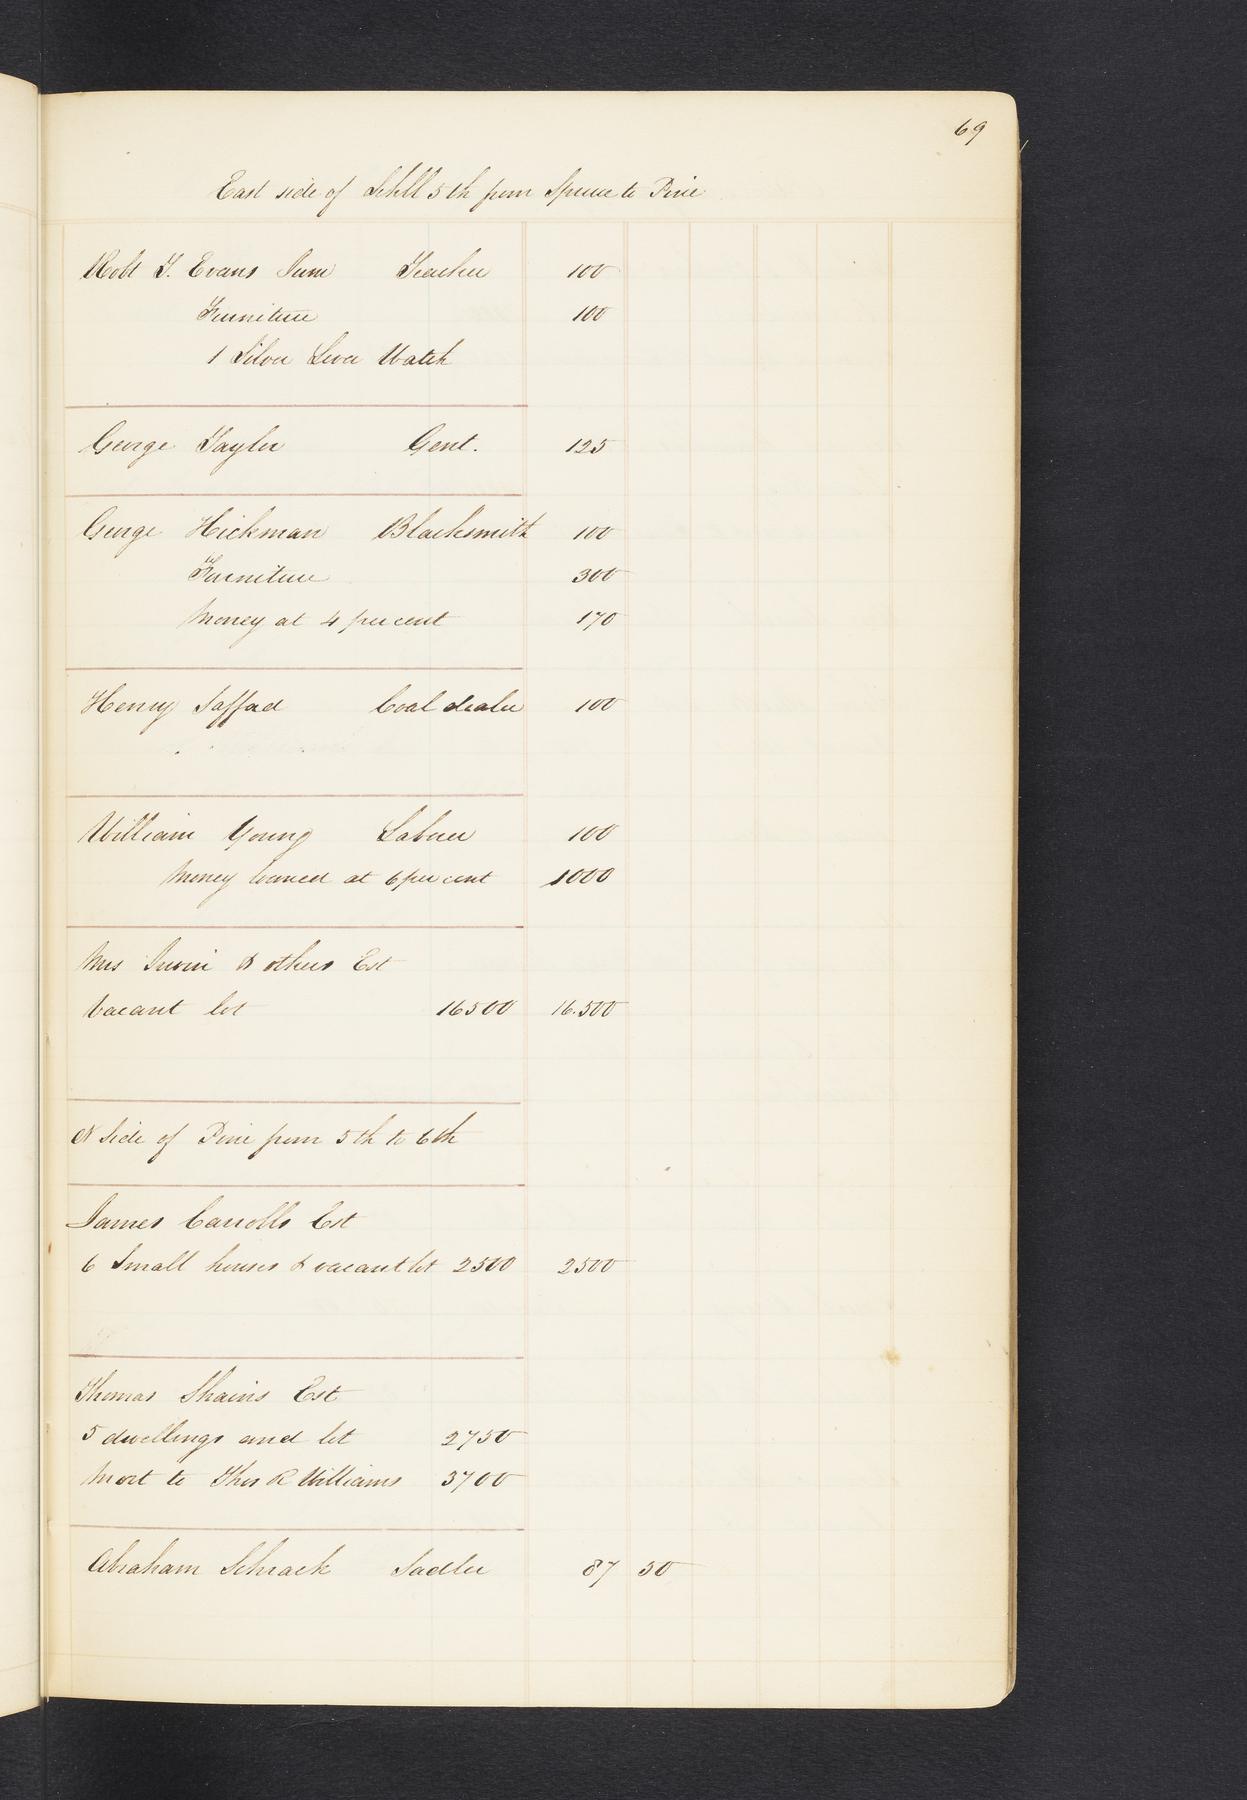 69
East side of Schll 5th from Spruce to Pine
Robt T. Evans Junr Teacher 100
Furniture 100
1 Silver Lever Watch
George Taylor Gent. 125
George Hickman Blacksmith 100
Furniture 300
Money at 4 per cent 170
Henry Saffad Coal dealer 100
William Young Laborer 100
Money loaned at 6 per cent 1000
Mrs Irvin & others Est
Vacant lot 16500 16.500
N Side of Pine from 5th to 6th
James Carrolls Est
6 Small houses & vacant lot 2500 2500
Thomas Shains Est
5 dwellings and lot 2750
Mort to Thos R Williams 3700
Abraham Schrack Sadler 87 50